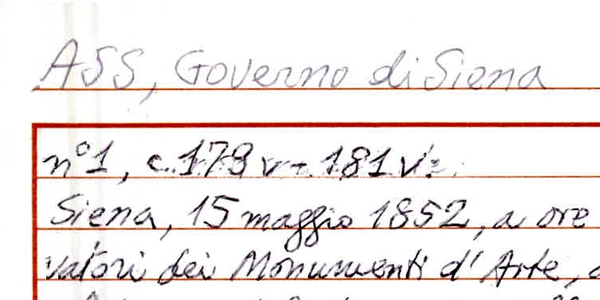 ASS, Governo di Siena
n°1, c. 179v - 181v:
Siena, 15 maggio 1852, a ore
vatori dei Monumenti d'Arte,